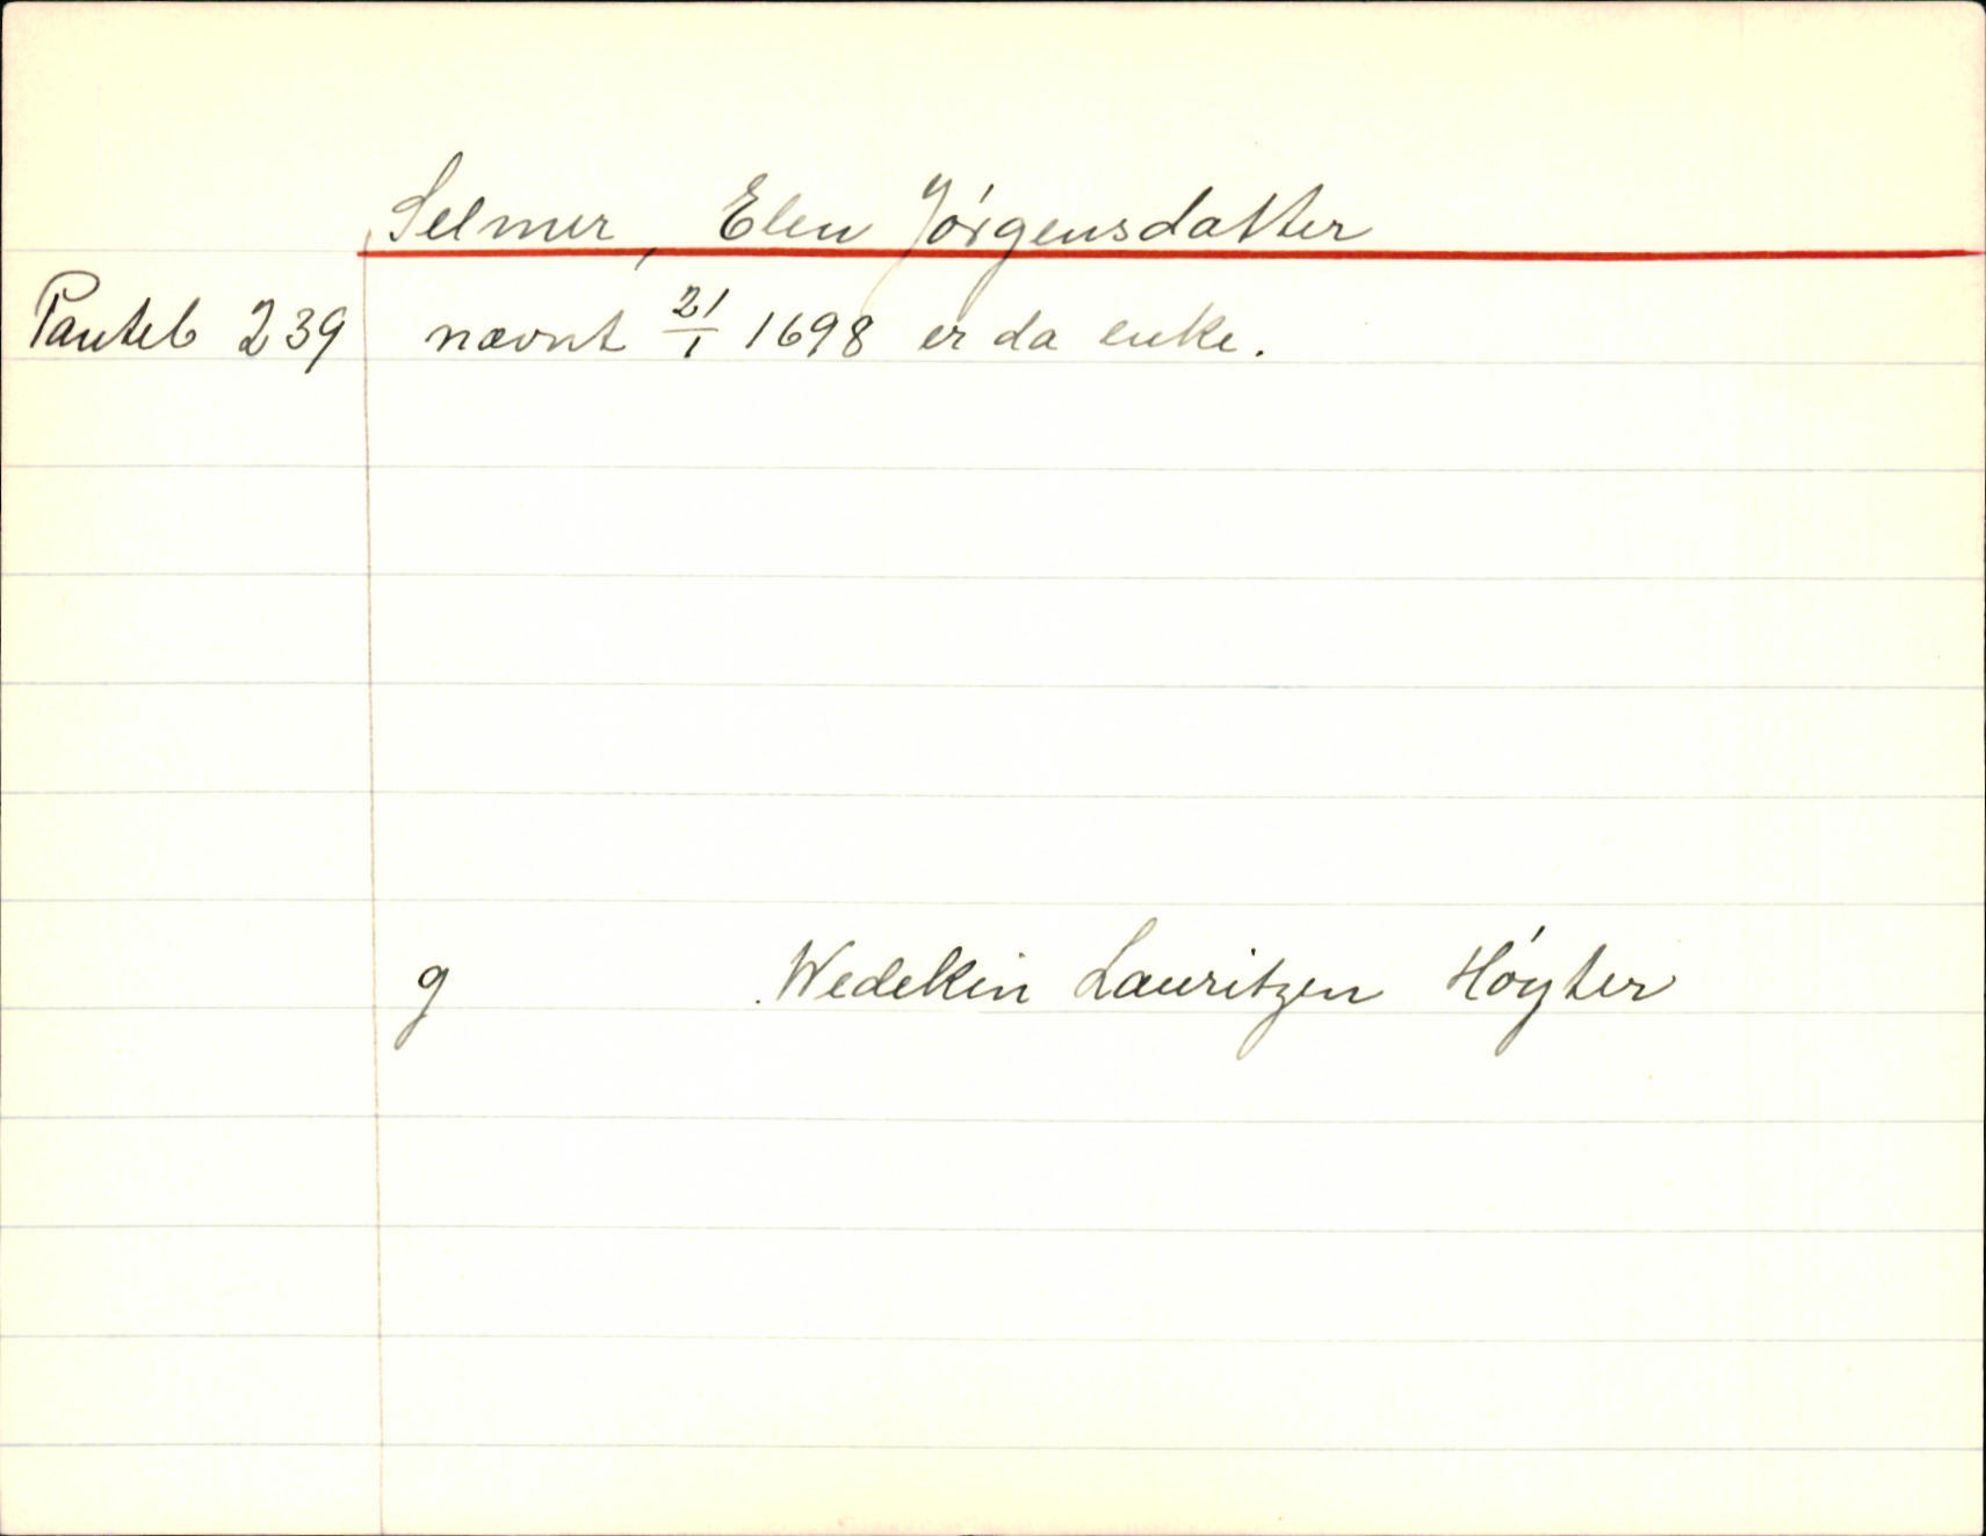 Selmer, Elen Jórgensdatter
Panteb 239 nævnt 21/1 1698 er da enke.
g Wedekin Lauritzen Hóyter